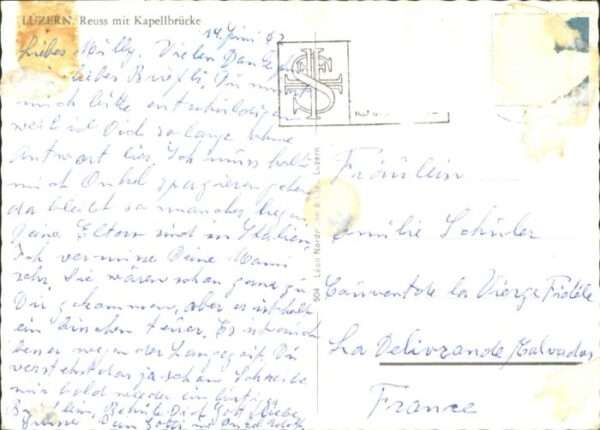 LUZERN, Reuss mit Kapellbrücke
14. Juni 67
Liebes Milly. Vielen Dank
liebes Briefli, Du musst
mich bitte entschuldigen
weil ich Dich so lange ohne
Antwort lies. Ich muss halt
mit Onkel spazieren gehen
da bleibt so manches liegen
Deine Eltern sind in Italien,
Ich vermisse Deine Mami
sehr. Sie wären schon gerne zu
Dir gekommen, aber es ist halt
ein bischen teuer. Es ist auch
besser wegen der Langezeit. Du
verstehst das ja schon. Schreibe
mir bald wieder ein
Behüte Dich Gott. Liebe
Grüsse Dein Gotti und Onkel
904 Leon Luzern
Fräulein
Emilie Schüler
Couvent de la Vierge Fidèle
La Delivrande/Calvados
France